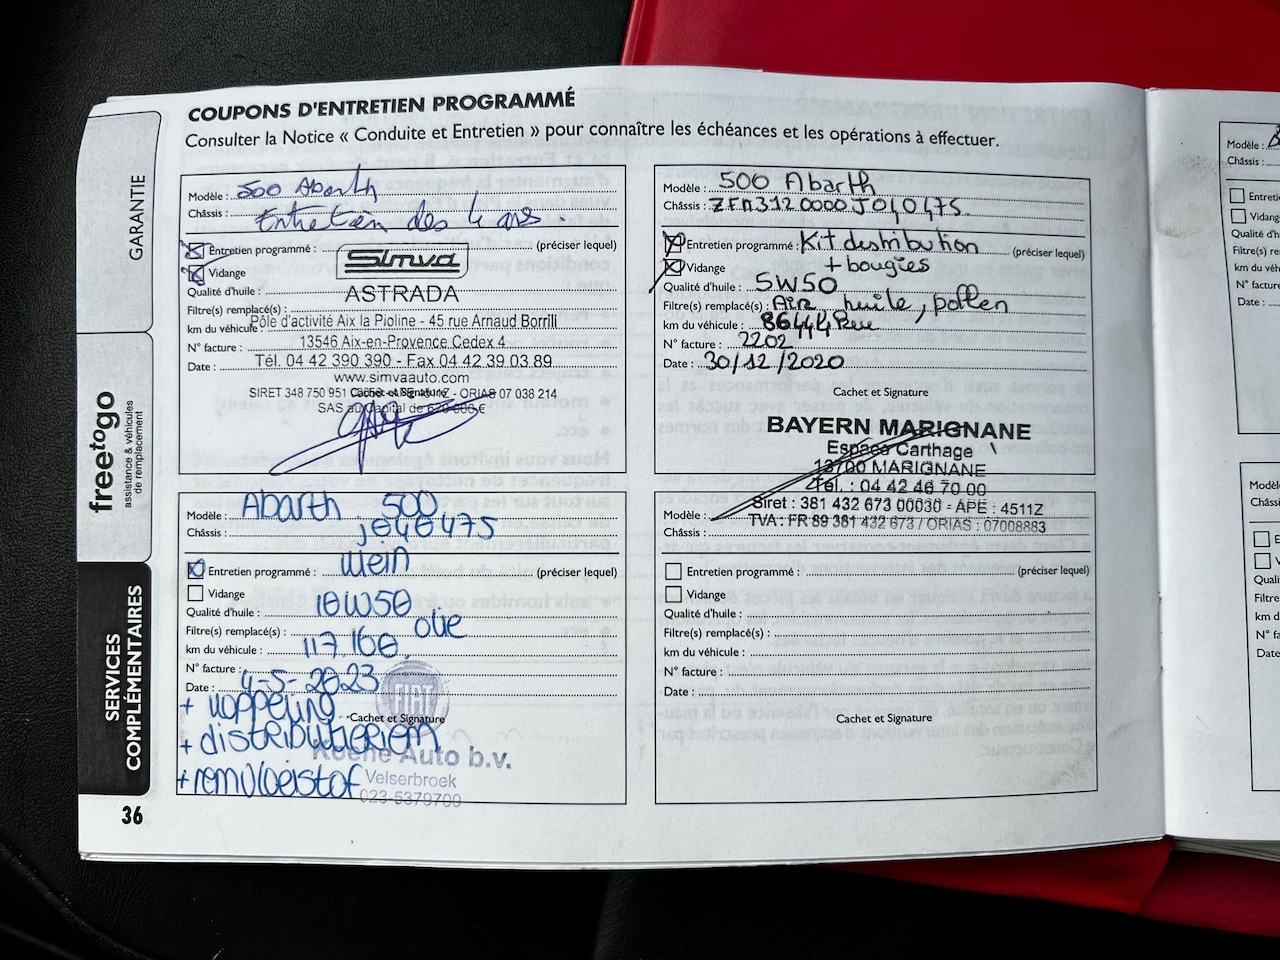 COUPONS D'ENTRETIEN PROGRAMMÉ
Consulter la Notice « Conduite et Entretien » pour connaître les échéances et les opérations à effectuer.
GARANTIE
freetogo
assistance & véhicules
de remplacement
SERVICES
COMPLÉMENTAIRES
36
Modèle : 500 Abarth
Châssis : Entretien des 4 ans.
Entretien programmé : (préciser lequel)
Vidange
Simva
Qualité d'huile :
ASTRADA
Filtre(s) remplacé(s) :
Pôle d'activité Aix la Pioline - 45 rue Arnaud Borrili
km du véhicule :
13546 Aix-en-Provence Cedex 4
N° facture :
Tél. 04 42 390 390 - Fax 04 42 39 03 89
Date :
www.simvaauto.com
SIRET 348 750 951 - ORIAS 07 038 214
Cachet et Signature
SAS au Capital de €
Modèle : 500 Abarth
Châssis : ZFA3120000J040475
Entretien programmé : Kit distribution (préciser lequel)
Vidange + bougies
Qualité d'huile : 5W50
Filtre(s) remplacé(s) : Air huile, pollen
km du véhicule : 86444
N° facture : 2202
Date : 30/12/2020
Cachet et Signature
BAYERN MARIGNANE
Espace Carthage
13700 MARIGNANE
Tél. : 04 42 46 70 00
Siret : 381 432 673 00030 - APE : 4511Z
TVA : FR 89 381 432 673 / ORIAS : 07008883
Modèle : Abarth 500
Châssis : J040475
Entretien programmé : klein (préciser lequel)
Vidange
Qualité d'huile : 10W50
Filtre(s) remplacé(s) : olie
km du véhicule : 117.160
N° facture :
Date : 4-5-2023
FIAT
+ koppeling
Cachet et Signature
+ distributieriem
Koene Auto b.v.
Velserbroek
+ remvloeistof
023-5379700
Modèle :
Châssis :
Entretien programmé : (préciser lequel)
Vidange
Qualité d'huile :
Filtre(s) remplacé(s) :
km du véhicule :
N° facture :
Date :
Cachet et Signature
Modèle :
Châssis :
Vidange
Filtre(s)
km du véh
N° facture
Date :
Châssi
Quali
Filtre
km d
N° f
Date